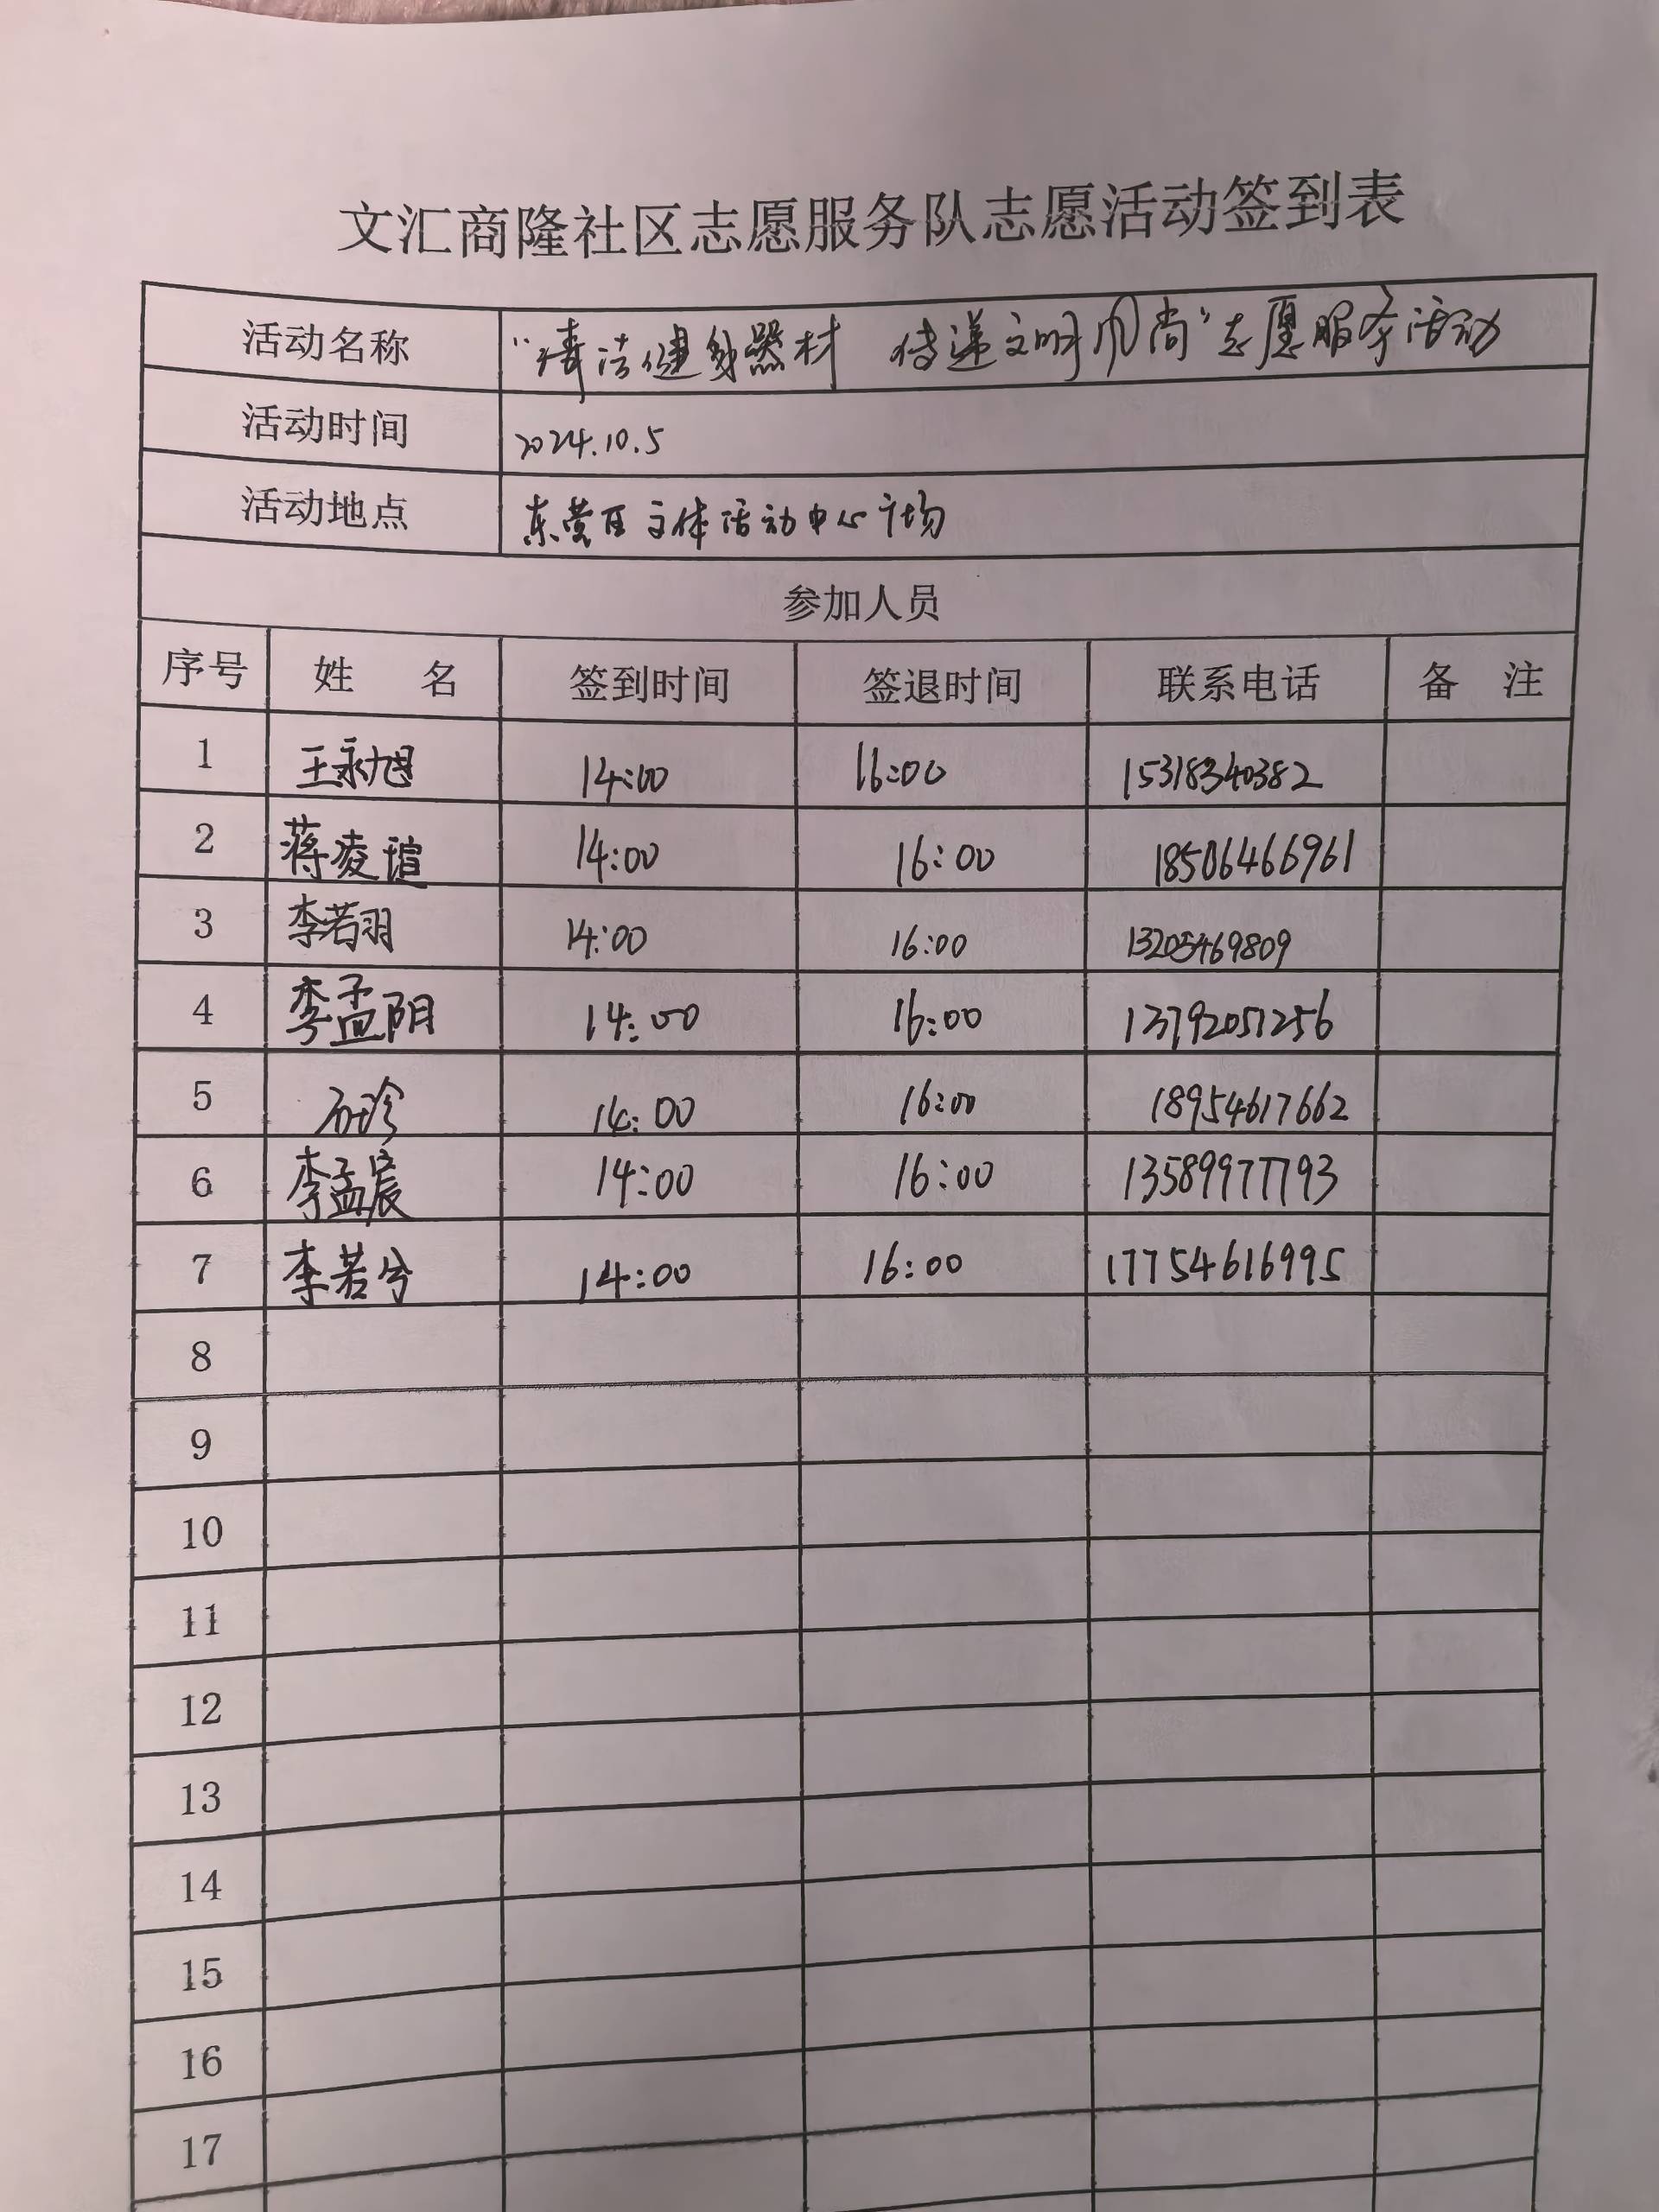 文汇商隆社区志愿服务队志愿活动签到表
活动名称 "清洁健身器材 传递文明风尚"志愿服务活动
活动时间 2024.10.5
活动地点 东营区文体活动中心广场
参加人员
序号 姓 名 签到时间 签退时间 联系电话 备 注
1 王永旭 14:00 16:00 15318340382
2 蒋凌谊 14:00 16:00 18506466961
3 李若羽 14:00 16:00 13205469809
4 李孟阳 14:00 16:00 13792051256
5 14:00 16:00 18954617662
6 李孟宸 14:00 16:00 13589977793
7 李若兮 14:00 16:00 17754616995
8
9
10
11
12
13
14
15
16
17